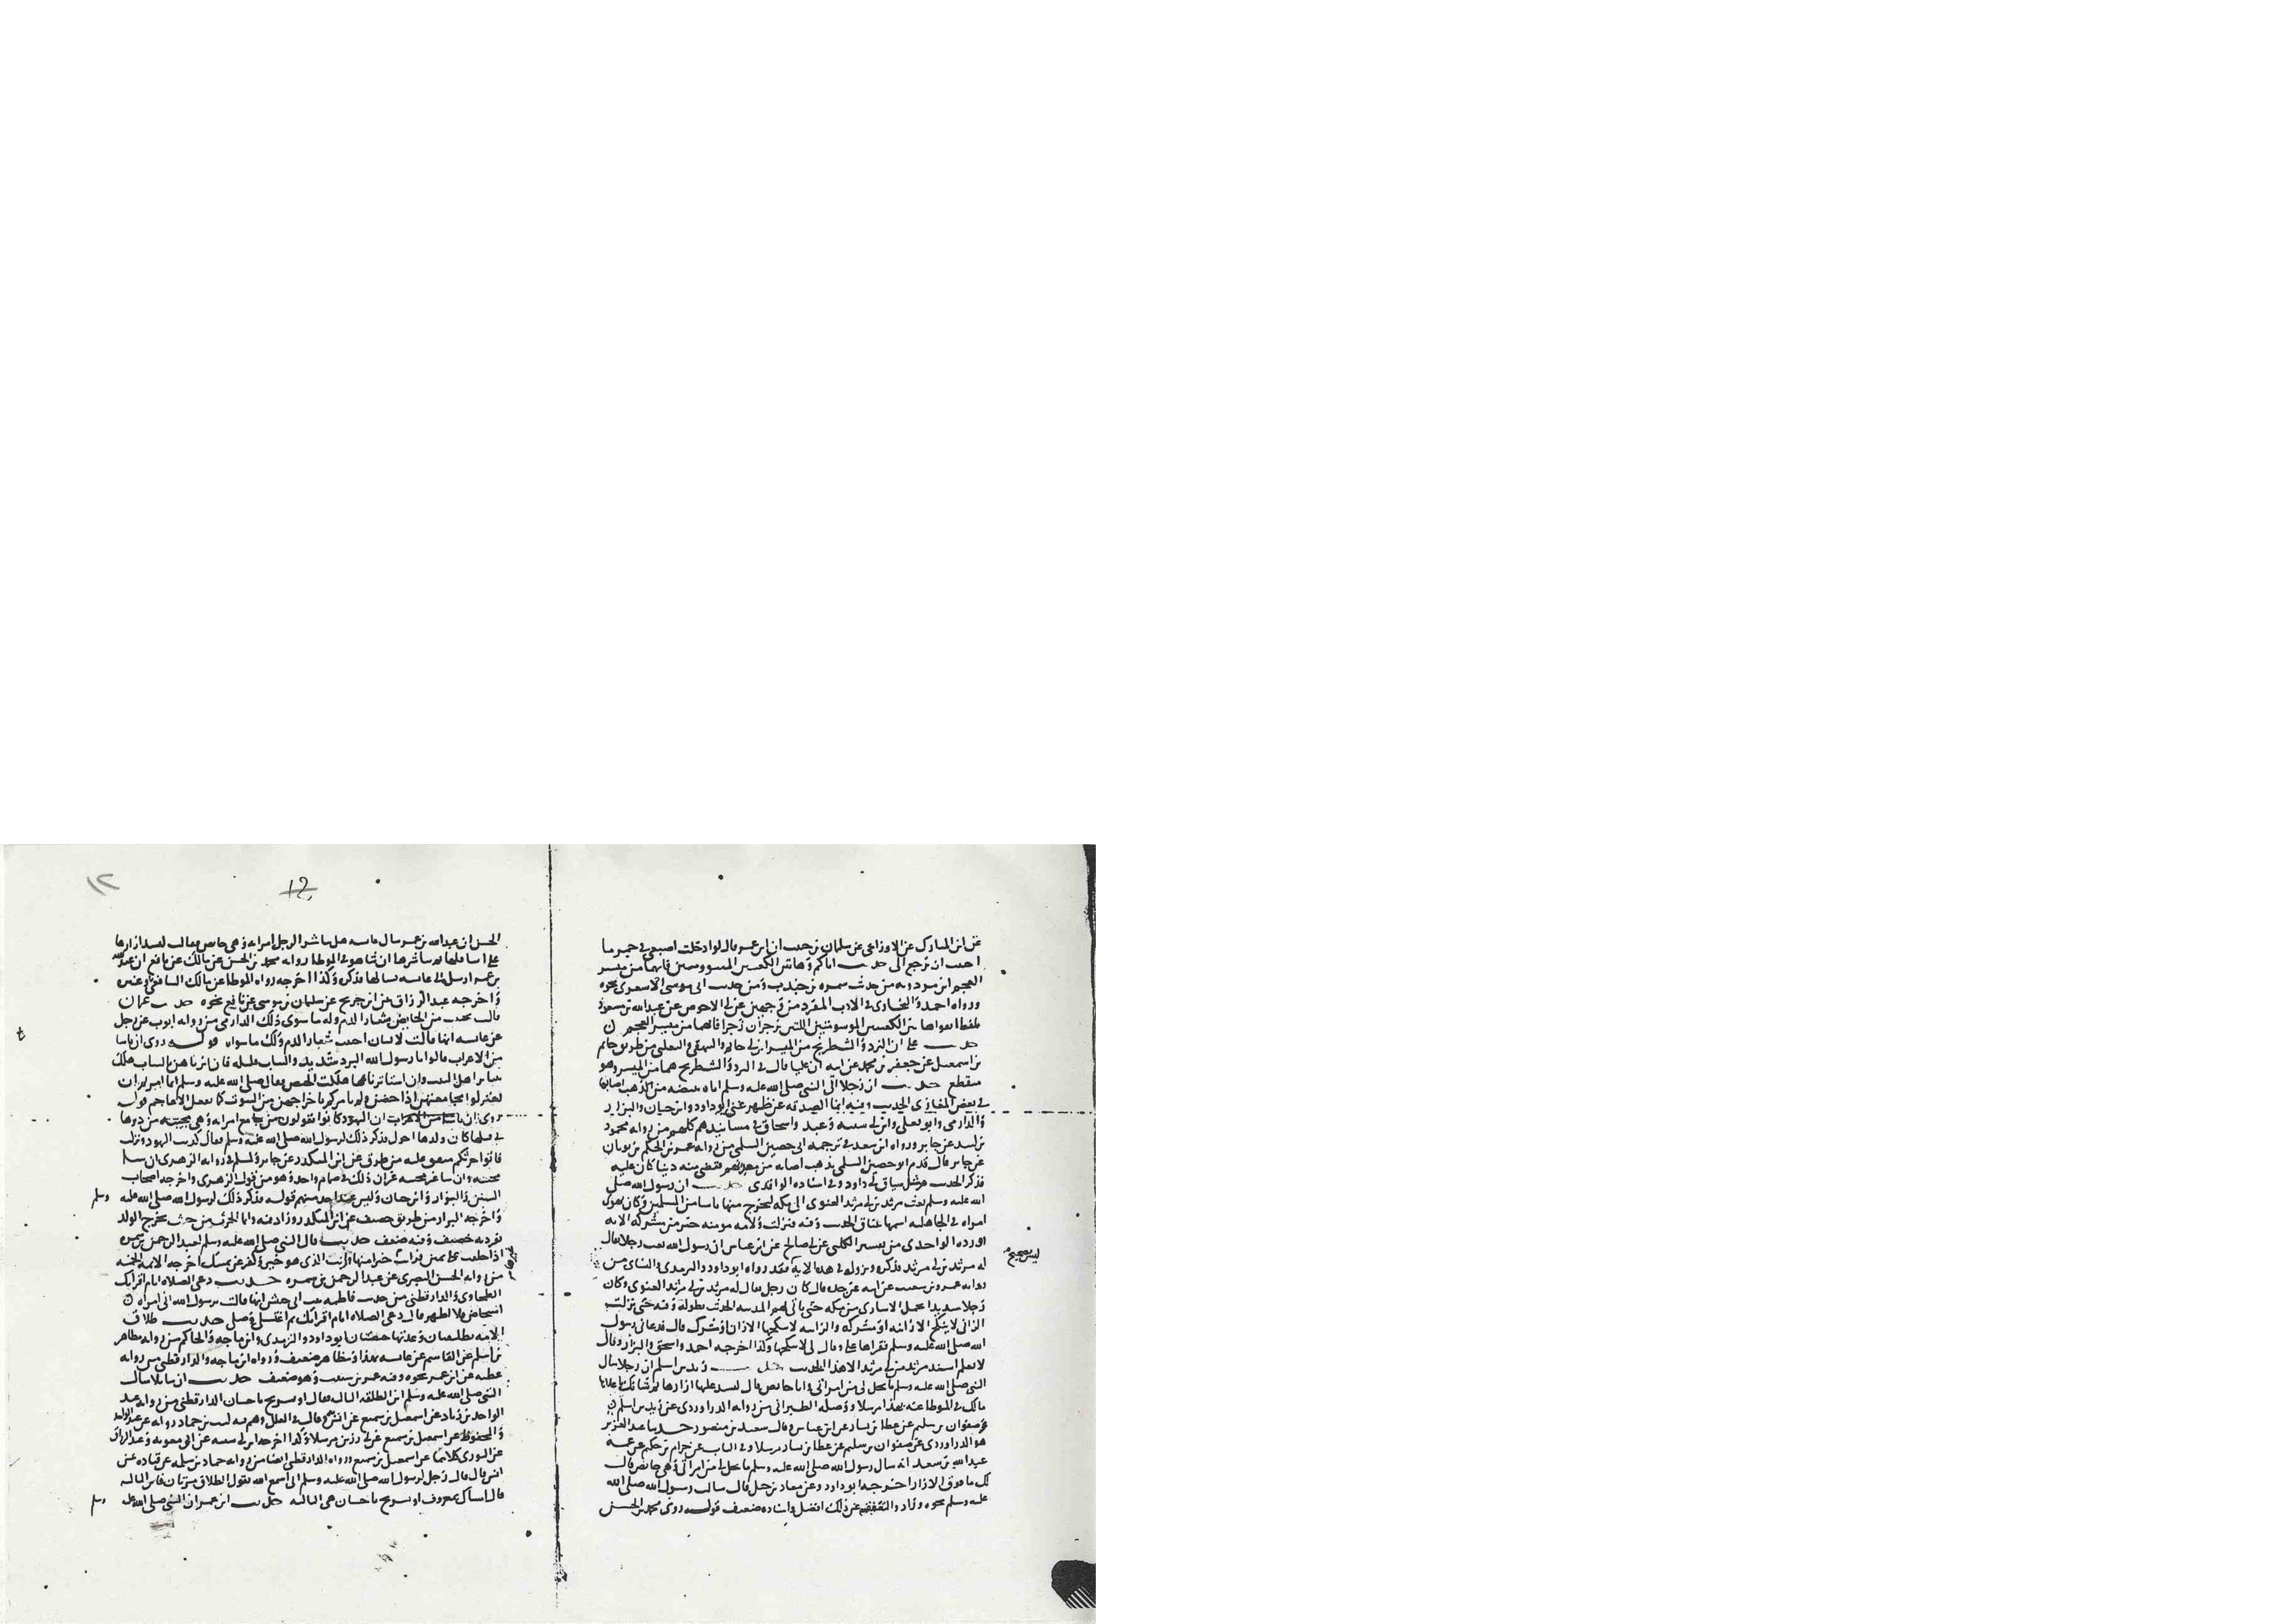 عن ابن المبارك عن الاوزاعي عن سلمان بن حبيب ان ابن عمر قال لو ادخلت اصبعي في خمر ما
احببت ان ترجع الى حديث اياكم وهاتين الكعبتين فانهما من ميسر
العجم ابن مردويه من حديث سمرة بن جندب ومن حديث ابى موسى الاشعرى نحوه
ورواه احمد والبخارى في الادب المفرد من وجهين عن ابي الاحوص عن عبد الله بن مسعود
بلفظ اتقوا هاتين الكعبتين الموسومتين اللتين تزجران زجرا فانهما من ميسر العجم
حديث علي ان النرد والشطرنج من الميسر ابن ابي حاتم والبيهقي والثعلبي من طريق حاتم
بن اسمعيل عن جعفر بن محمد عن ابيه ان عليا قال في النرد والشطرنج هما من الميسر وهو
منقطع حديث ان رجلا اتى النبي صلى الله عليه وسلم اتاه ببيضة من الذهب اصابها
في بعض المغازى الحديث وفيه انما الصدقة عن ظهر غنى ابو داود وابن حبان والبزار
والدارمي وابو يعلى وابن ابي شيبة وعبد واسحاق في مسانيدهم كلهم من رواية محمود
بن لبيد عن جابر ورواه ابن سعد في ترجمة ابى حصين السلمي من رواية عمر بن الحكم بن ثوبان
عن جابر قال قدم ابو حصين السلمي بذهب اصابه من معدنهم فقضى منه دينا كان عليه
فذكر الحديث مثل سياق ابي داود وفي اسناده الواقدى حديث ان رسول الله صلى
الله عليه وسلم بعث مرثد بن ابي مرثد الغنوى الى مكة ليخرج منها ناسا من المسلمين وكان يهوى
امراة في الجاهلية اسمها عناق الحديث وفيه فنزلت ولامة مومنة خير من مشركة الاية
اورده الواحدى من تفسير الكلبي عن ابي صالح عن ابن عباس ان رسول الله بعث رجلا يقال
له مرثد بن ابي مرثد فذكره ونزوله في هذه الاية فقد رواه ابو داود والترمذى والنسائي من
ليس بصحيح
رواية عمرو بن شعيب عن ابيه عن جده قال كان رجل يقال له مرثد بن ابي مرثد الغنوى وكان
رجلا شديدا يحمل الاسارى من مكة حتى ياتي بهم المدينة الحديث بطوله وفيه حتى نزلت
الزاني لا ينكح الا زانية او مشركة والزانية لا ينكحها الا زان او مشرك قال فدعاني رسول
الله صلى الله عليه وسلم فقراها علي وقال لي لا تنكحها وكذا اخرجه احمد واسحق والبزار وقال
لا نعلم اسند مرثد بن ابي مرثد الا هذا الحديث حديث زيد بن اسلم ان رجلا سال
النبي صلى الله عليه وسلم ما يحل لي من امراتي وانا حايض قال لتشد عليها ازارها ثم شانك باعلاها
مالك في الموطا عنه بهذا مرسلا ووصله الطبراني من رواية الدراوردى عن زيد بن اسلم
وصفوان بن سليم عن عطا بن يسار عن ابن عباس وقال سعيد بن منصور حدثنا عبد العزيز
هو الدراوردى عن صفوان بن سليم عن عطا بن يسار مرسلا وفي الباب عن حرام بن حكيم عن عمه
عبد الله بن سعد انه سال رسول الله صلى الله عليه وسلم ما يحل لي من امراتي وهي حائض قال
لك ما فوق الازار اخرجه ابو داود وعن معاذ بن جبل قال سالت رسول الله صلى الله
عليه وسلم نحوه وزاد والتعفف عن ذلك افضل واسناده ضعيف قوله روى محمد بن الحسن
12
١٢
الحسن ان عبد الله بن عمر سال عايشة هل يباشر الرجل امراته وهي حايض فقالت لتشد ازارها
على اسافلها ثم يباشرها ان شا هو في الموطا رواية محمد بن الحسن عن مالك عن نافع ان عبد الله
بن عمر ارسل الى عايشة يسالها فذكره وكذا اخرجه رواه الموطا عن مالك الشافعي وغيره
واخرجه عبد الرزاق عن ابن جريج عن سلمان بن موسى عن نافع نحوه حديث
قالت يجتنب من الحايض شعار الدم وله ما سوى ذلك الدارمي من رواية ايوب عن رجل
عن عايشة انها قالت لانسان اجتنب شعار الدم ولك ما سواه قوله روى ان ناسا
من الاعراب قالوا يا رسول الله البرد شديد والثياب قليلة فان اثرناهن بالثياب هلك
سائر اهل البيت وان استاثرنا بها هلكت الحيض فقال صلى الله عليه وسلم انما امرتم ان
تعتزلوا مجامعتهن اذا حضن ولم يامركم باخراجهن من البيوت كما تفعل الاعاجم قوله
روى ان اليهود كانوا يقولون من جامع امراته وهي مجبية من دبرها
في قبلها كان ولدها احول فذكر ذلك لرسول الله صلى الله عليه وسلم فقال كذبت اليهود ونزلت
فاتوا حرثكم متفق عليه من طرق عن ابن المنكدر عن جابر ولمسلم في رواية الزهرى ان شا
مجبية وان شا غير مجبية غير ان ذلك في صمام واحد وهو من قول الزهرى واخرجه اصحاب
السنن والبزار وابن حبان وليس عند احد منهم قوله فذكر ذلك لرسول الله صلى الله عليه وسلم
واخرجه البزار من طريق خصيف عن ابن المنكدر وزاد فيه وانما الحرث من حيث يخرج الولد
تفرد به خصيف وفيه ضعف حديث قال النبي صلى الله عليه وسلم لعبد الرحمن بن سمرة
اذا حلفت على يمين فرايت خيرا منها فات الذى هو خير وكفر عن يمينك اخرجه الايمة الخمسة
من رواية الحسن البصرى عن عبد الرحمن بن سمرة حديث دعي الصلاه ايام اقرائك
الطحاوى والدارقطني من حديث فاطمة بنت ابى حبيش انها قالت يرسول الله اني امراة
استحاض فلا اطهر قال دعي الصلاه ايام اقرائك ثم اغتسلي وصلي حديث طلاق
الامة تطليقتان وعدتها حيضتان ابو داود والترمذى وابن ماجه والحاكم من رواية مظاهر
بن اسلم عن القاسم عن عايشة بهذا ومظاهر ضعيف ورواه ابن ماجه والدارقطني من رواية
عطية عن ابن عمر نحوه وفيه عمر بن شبيب وهو ضعيف حديث ان سايلا سال
النبي صلى الله عليه وسلم اين الطلقة الثالثة فقال او تسريح باحسان الدارقطني من رواية عبد
الواحد بن زياد عن اسمعيل بن سميع عن انس قال في العلل وهم فيه ليث بن حماد رواه عن عبد الواحد
والمحفوظ عن اسمعيل بن سميع عن ابي رزين مرسلا وكذا اخرجه ابن ابي شيبة عن ابى معوية وعبد الرزاق
عن الثورى كلاهما عن اسمعيل بن سميع ورواه الدارقطني ايضا من رواية حماد بن سلمة عن قتادة عن
انس قال قال رجل لرسول الله صلى الله عليه وسلم اني اسمع الله يقول الطلاق مرتان فاين الثالثة
قال امساك بمعروف او تسريح باحسان هي الثالثة حديث ابن عمر ان النبي صلى الله عليه وسلم